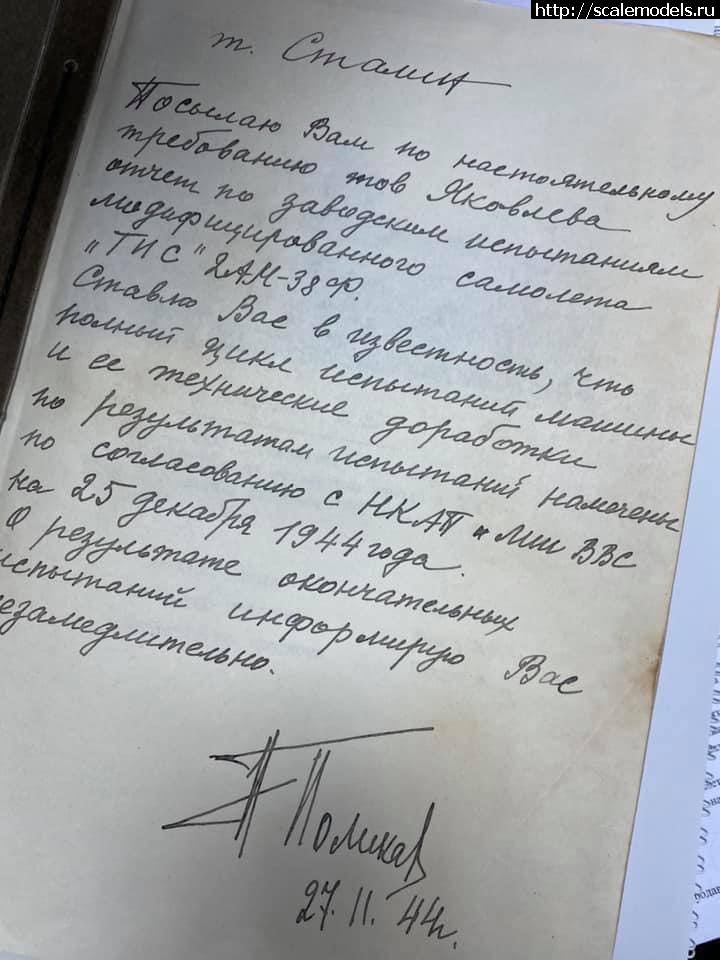 http://scalemodels.ru
т. Сталин
Посылаю Вам по настоятельному
требованию тов Яковлева
отчет по заводским испытаниям
модифицированного самолета
"ТИС" 2АМ-38ф.
Ставлю Вас в известность, что
полный цикл испытаний машины
и ее технические доработки
по результатам испытаний намечены
по согласованию с НКАП и ВВС
на 25 декабря 1944 года.
О результате окончательных
испытаний информирую Вас
незамедлительно.
27.11.44г.